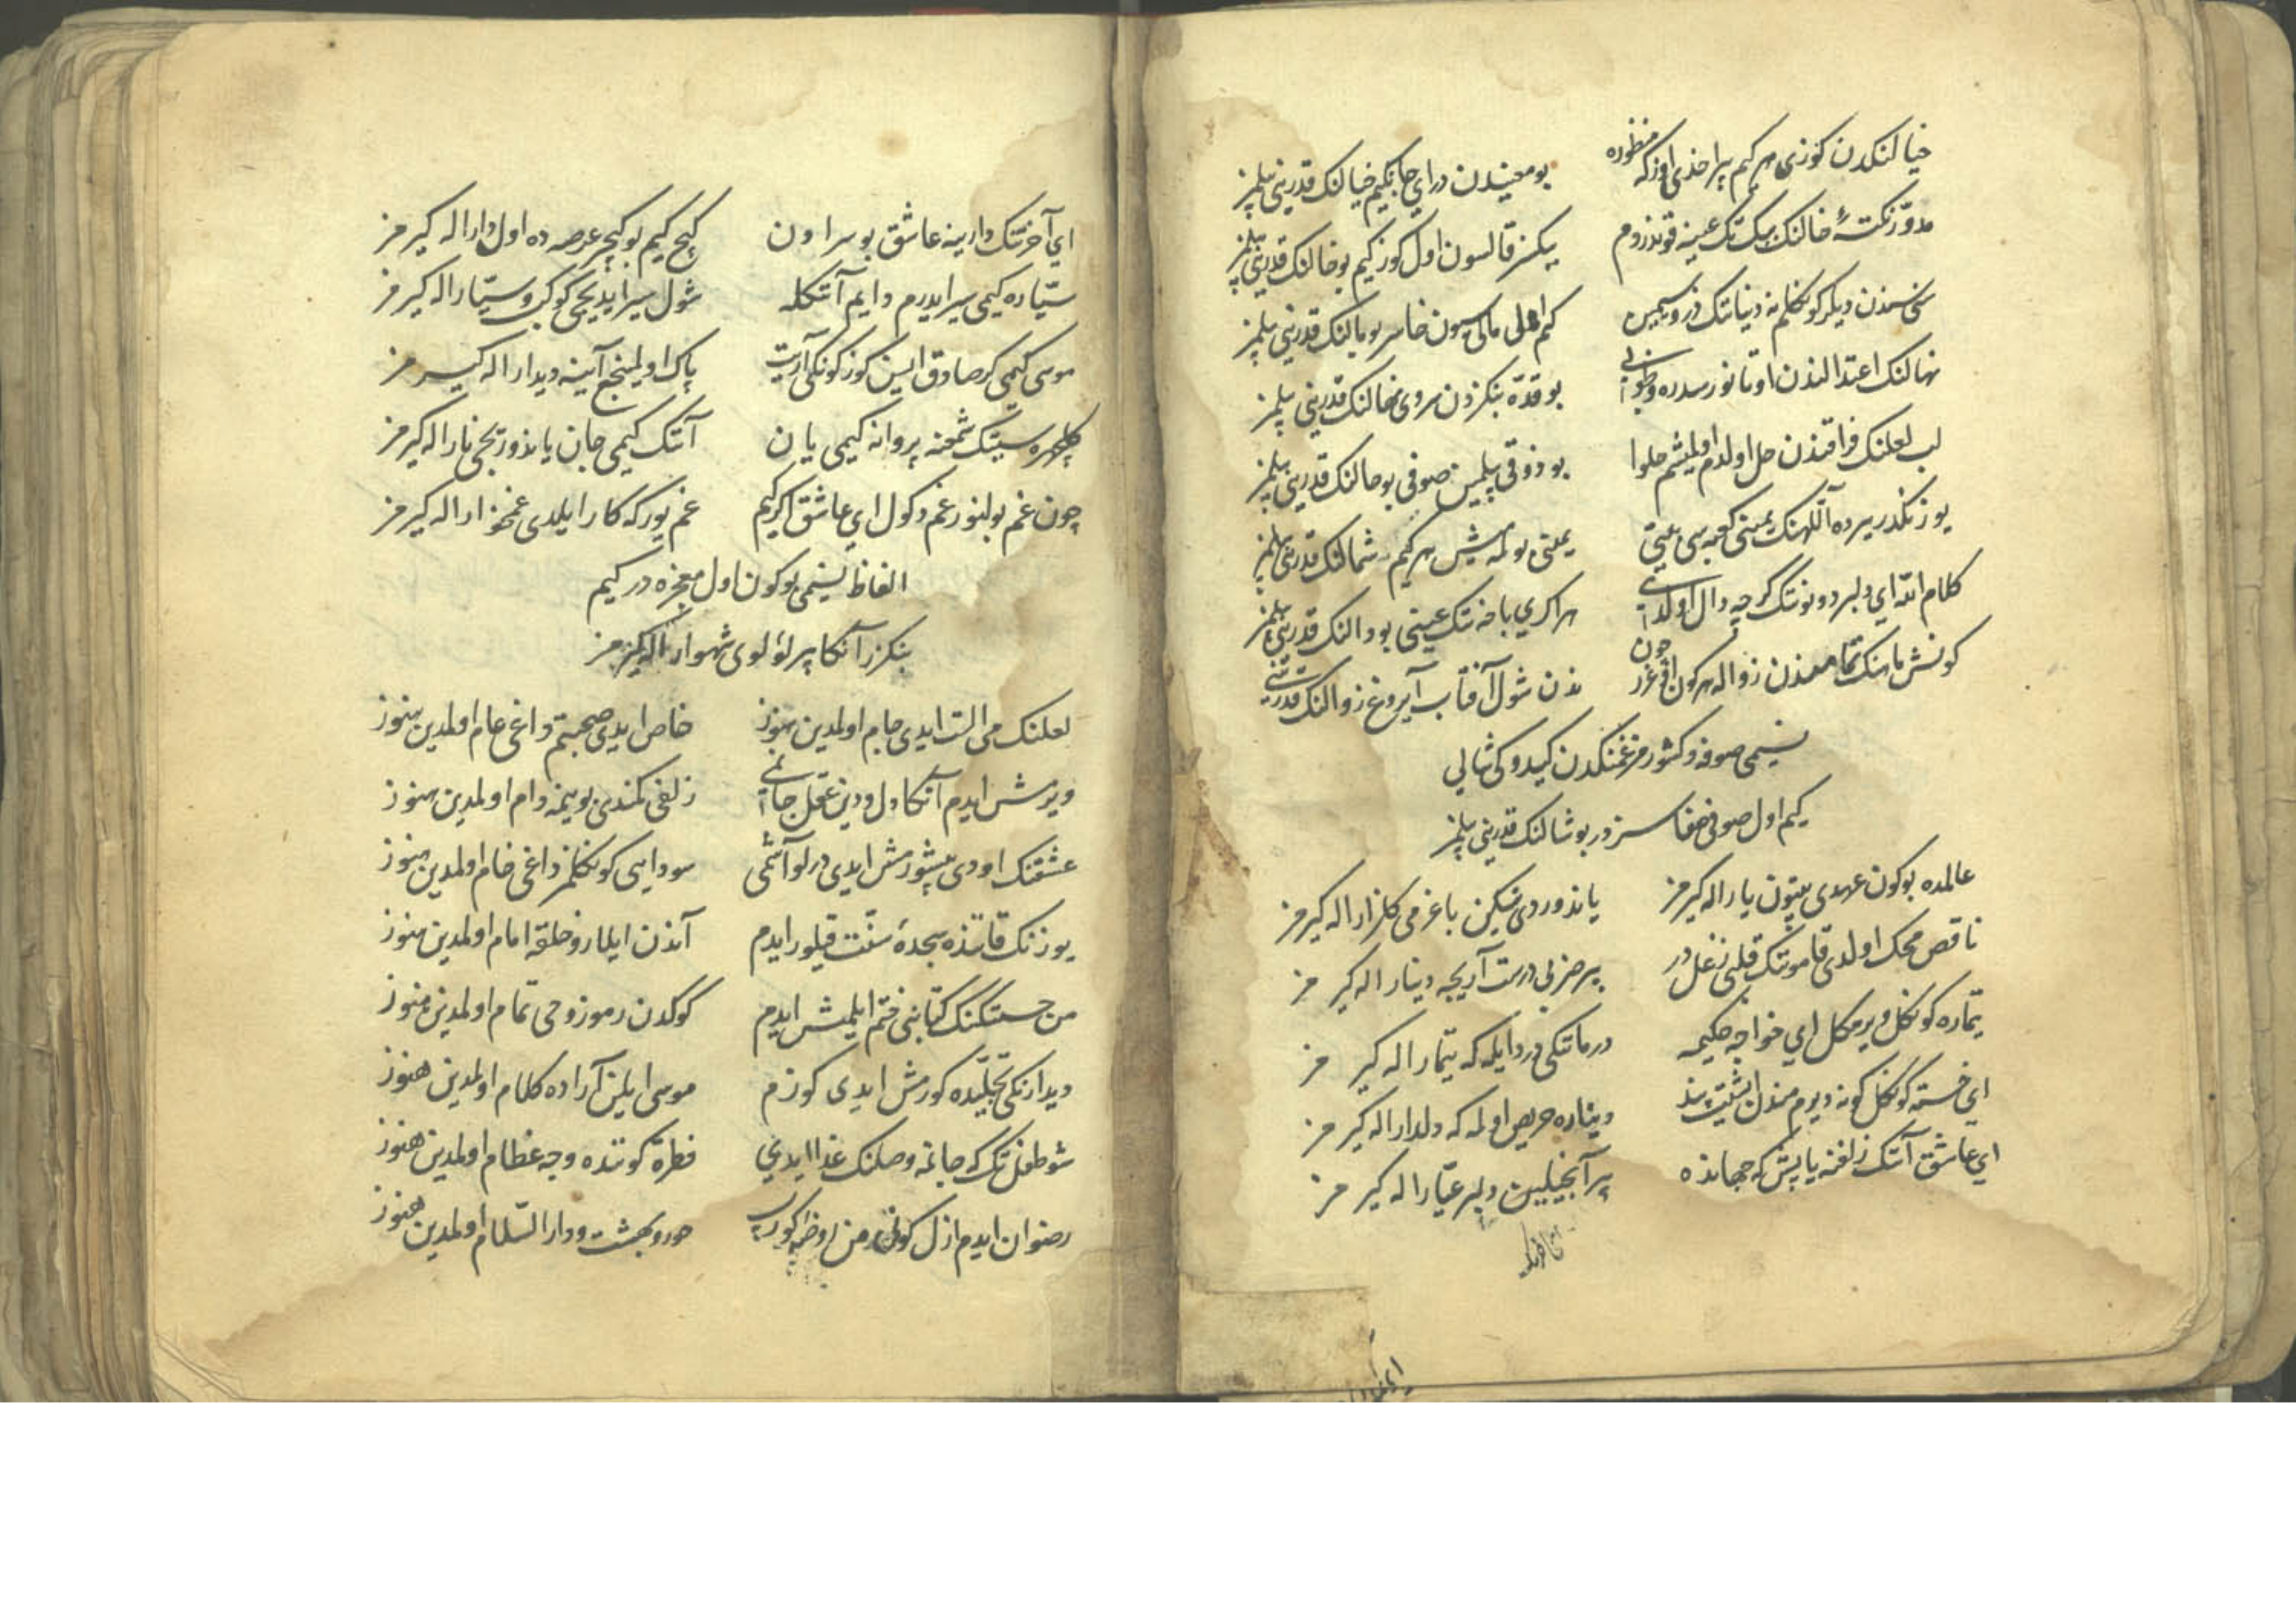 خیالنکدن کوزی هر کیم پیراخدی اوزکه منظوره بو معنیدن درای جانکیم خیالنک قدرینی بیلمز
مدوّر نکتهٔ خالنک بیک تک عینه قوندردم بیکسز قالسون اول کوز کیم بو خالنک قدرینی بیلمز
سنی سندن دیلر کوکلم نه دنیاتک زر و سیمین کم اهلی مالی سون خاسر بو مالنک قدرینی بیلمز
نهالنک اعتدالندن اوتانور سدره و طوبی بو قدّه بنکزدن سروی نهالنک قدرینی بیلمز
لب لعلنک فراقندن حل اولدم اولمیشم حلوا بو ذوقی بیلمین صوفی بو حالنک قدرینی بیلمز
یوزنکدر یرده اللهنک یمینی کعبه سی یعنی یمینی بولمه میش هر کیم شمالنک قدرینی بیلمز
کلام الله ای دلبر دوتوتک کرچه دال اولدی هر اکری باخه تک عینی بو دالنک قدرینی بیلمز
کونش ماهنک تمامندن زواله هر کون اوغرر چون ندن شول آفتاب آیروغ زوالنک قدرینی
نسیمی صوفه و کشور مز غمنکدن کیدوکی شالی
کیم اول صوفی صفاسز در بو شالنک قدرینی بیلمز
عالمده بوکون عهدی بتون یار اله کیرمز یاندوردی تیکن باغرمی کلزار اله کیرمز
ناقص محک اولدی قاموتک قلبی زغل در بر ضربی درست آریجه دینار اله کیرمز
تیماره کوکل ویرمکل ای خواجه حکیمه درماتکی دردایله که تیمار اله کیرمز
ای خسته کوکل کونه دیرم مندن ایشیت پند دیناره حریص اولمه که دلدار اله کیرمز
ای عاشق آنک زلفنه یاپش که جهانده بر آنجیلین دلبر عیّار اله کیرمز
ای آخرتک دارینه عاشق بو سرا اون کیچ کیم بو کیچر عرصه ده اول دار اله کیرمز
سیّاره کیمی سیر ایدرم دایم آنکله شول سیر ایدیجی کوکب سیّار اله کیرمز
موسی کیمی کر صادق ایسن کوزکونکی آریت پاک اولمینجه آینه دیدار اله کیرمز
کلچهره سینک شمعنه پروانه کیمی یان آنک کیمی جان یاندوریجی نار اله کیرمز
چون غم بولنور غم دکول ای عاشق اکر کیم غم یورکه کار ایلدی غمخوار اله کیرمز
الفاظ نسیمی بوکون اول معجزه در کیم
بنکزر آنکا بر لؤلوی شهوار اله کیرمز
لعلنک می الست ایدی جام اولمدین هنوز خاص ایدی صحبتم داغی عام اولمدین هنوز
ویرمش ایدم آنکا دل و دین عقل جانی زلفی کمندی بوینمه دام اولمدین هنوز
عشقنک اودی پیشورمش ایدی درلو آشمی سوداسی کوکلمز داغی خام اولمدین هنوز
یوزنک قاتنده سجدهٔ سنّت قیلور ایدم آندن ایلرو خلقه امام اولمدین هنوز
من حسنکنک کتابنی ختم ایلمیش ایدم کوکدن رموز وحی تمام اولمدین هنوز
دیدارنکی تجلّیده کورمش ایدی کوزم موسی ایلن آراده کلام اولمدین هنوز
شو طفل تک که جانمه وصلنک غذا ایدی فطره کونده وجه عظام اولمدین هنوز
رضوان ایدم ازل کونی من حور و بهشت و دار السّلام اولمدین هنوز